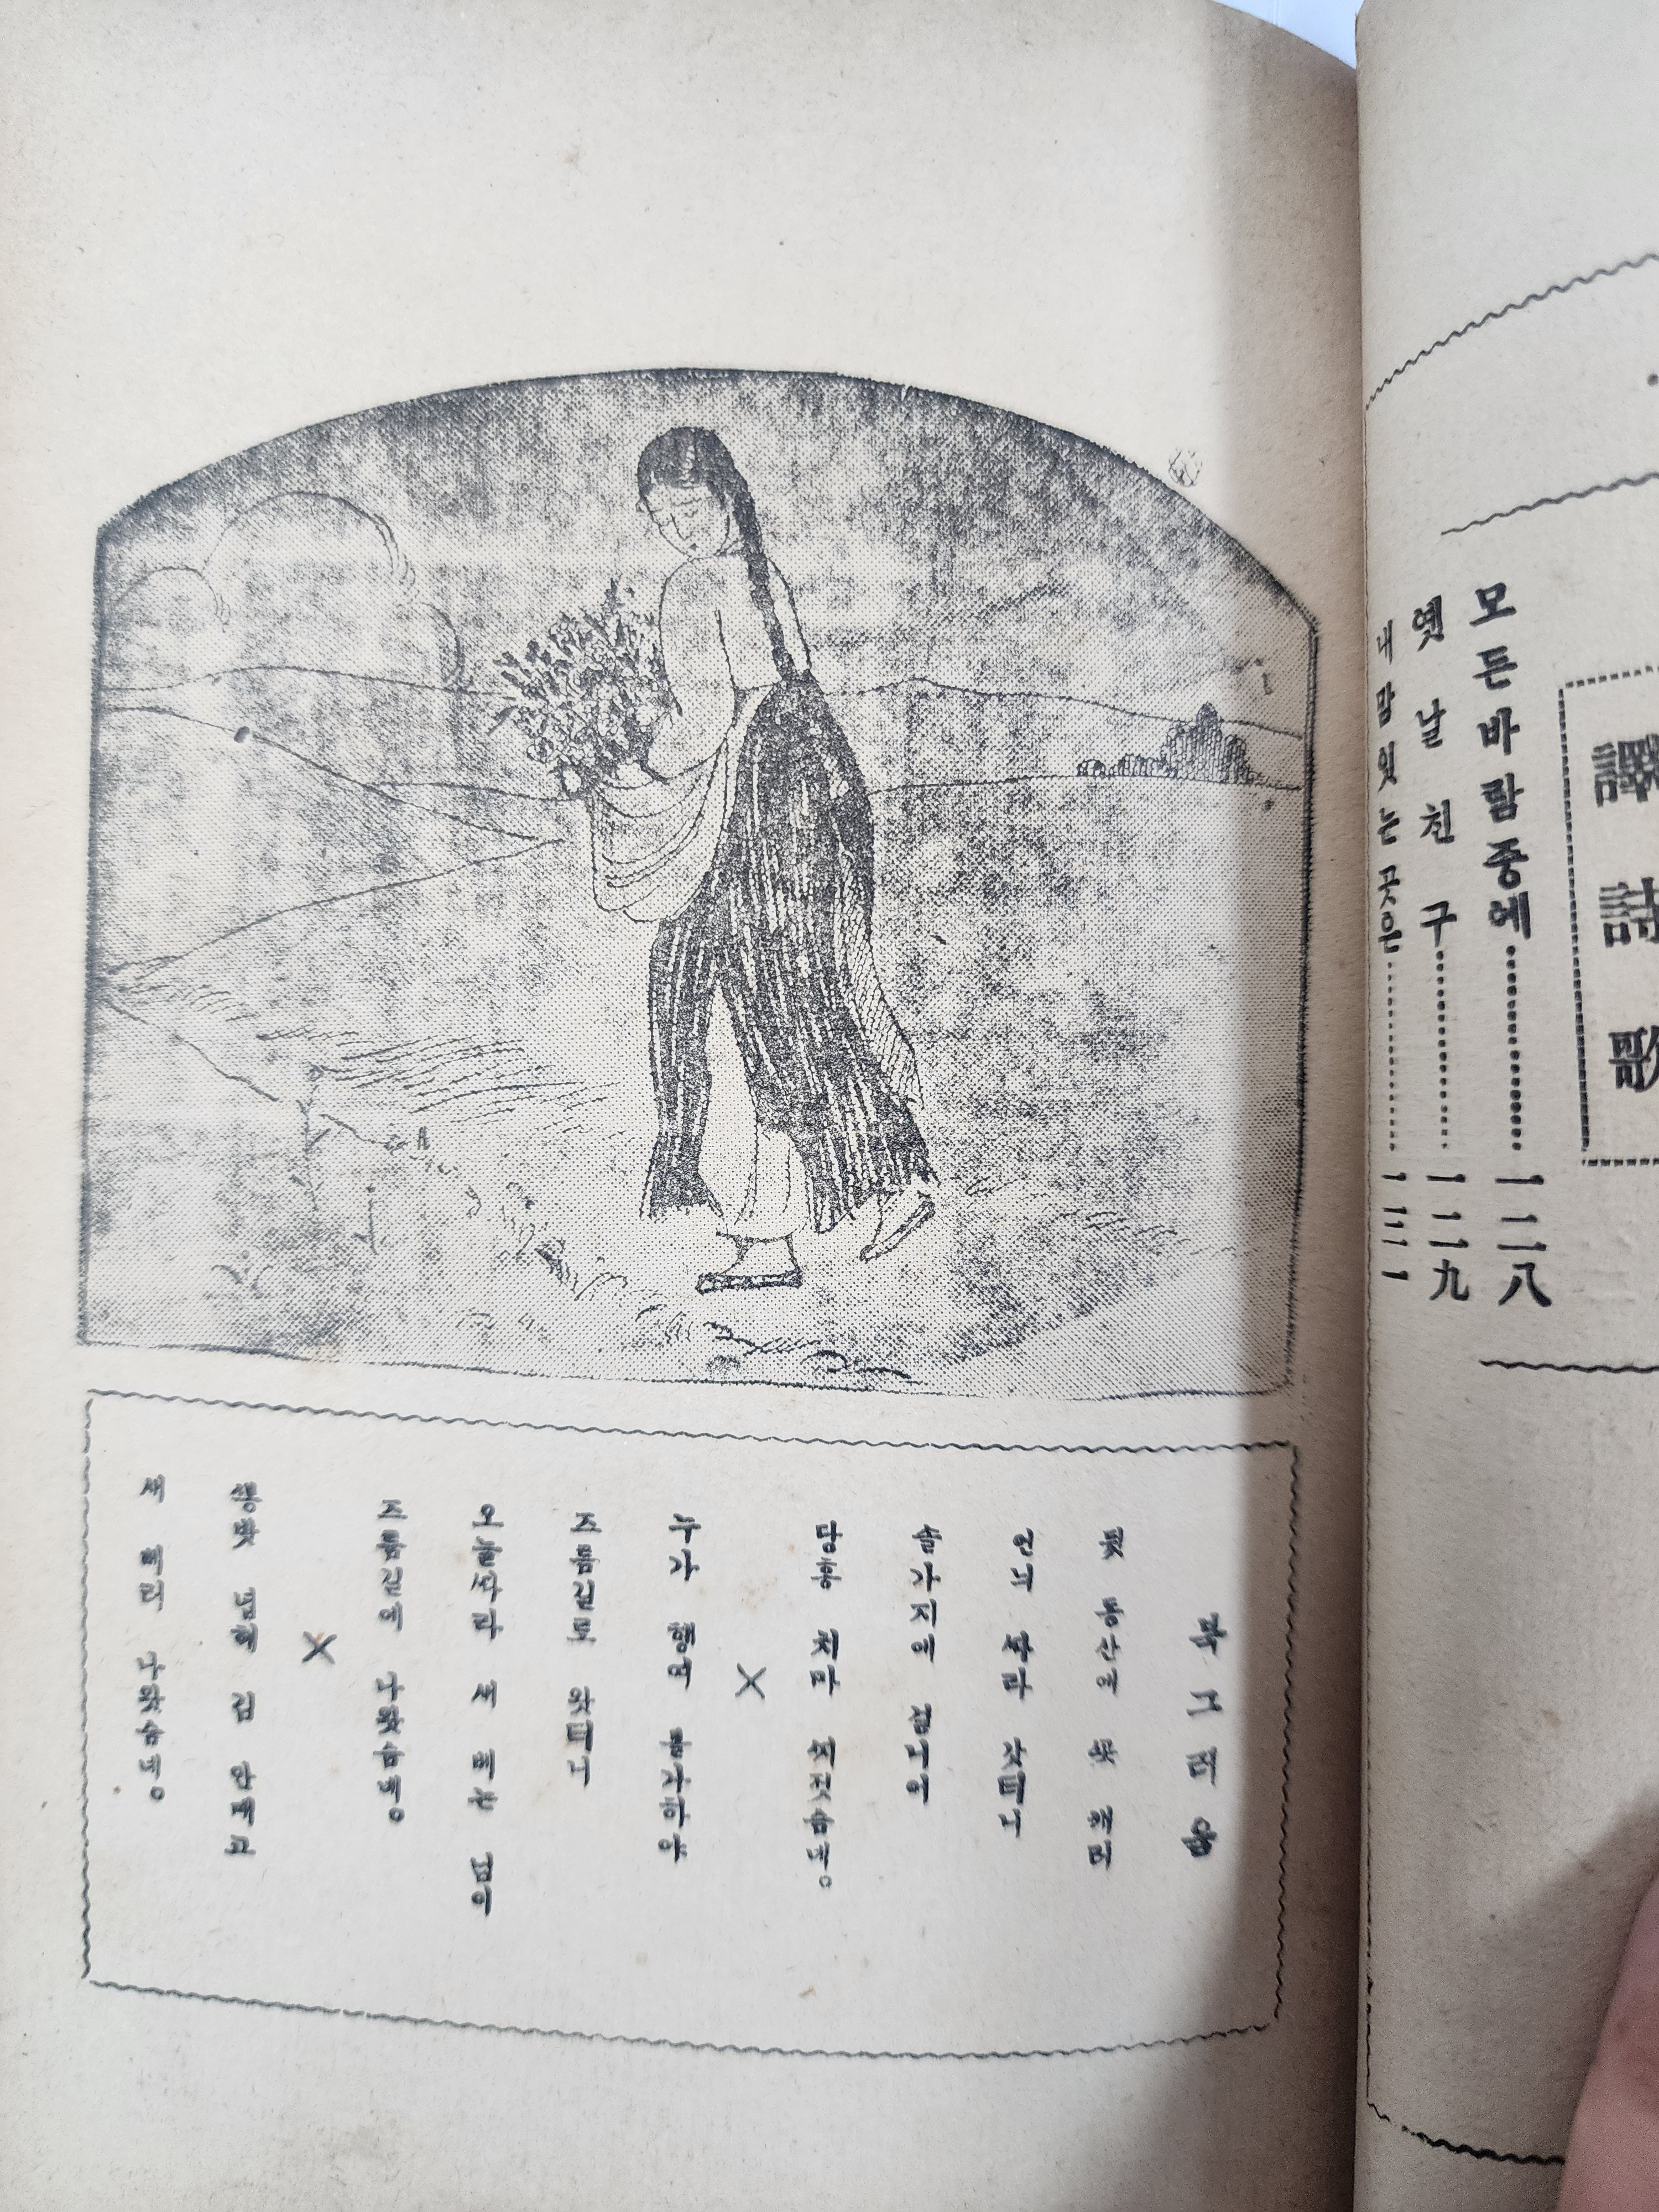 譯詩歌
모든바람중에……………一二八
옛날친구……………一二九
내맘잇는곳은……………一三一
북그러움
뒷 동산에 ᄭᅩᆺ 캐러
언늬 ᄯᅡ라 갓더니
솔가지에 걸니어
당홍 치마 ᄶᅵ젓슴네。
×
누가 행여 볼가하야
즈름길로 왓더니
오늘ᄯᅡ라 새 베는 님이
즈름길에 나왓슴네。
×
ᄲᅩᆼ밧 녑헤 김 안매고
새 베러 나왓슴네。